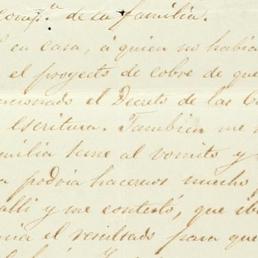 comp.ª de su familia.
en casa, á quien no habia
el proyecto de cobre de que
cionado el Decreto de las
escritura. Tambien me
milia teme al vomito y
podria hacernos mucho
alli y me contestó, que
el resultado para que